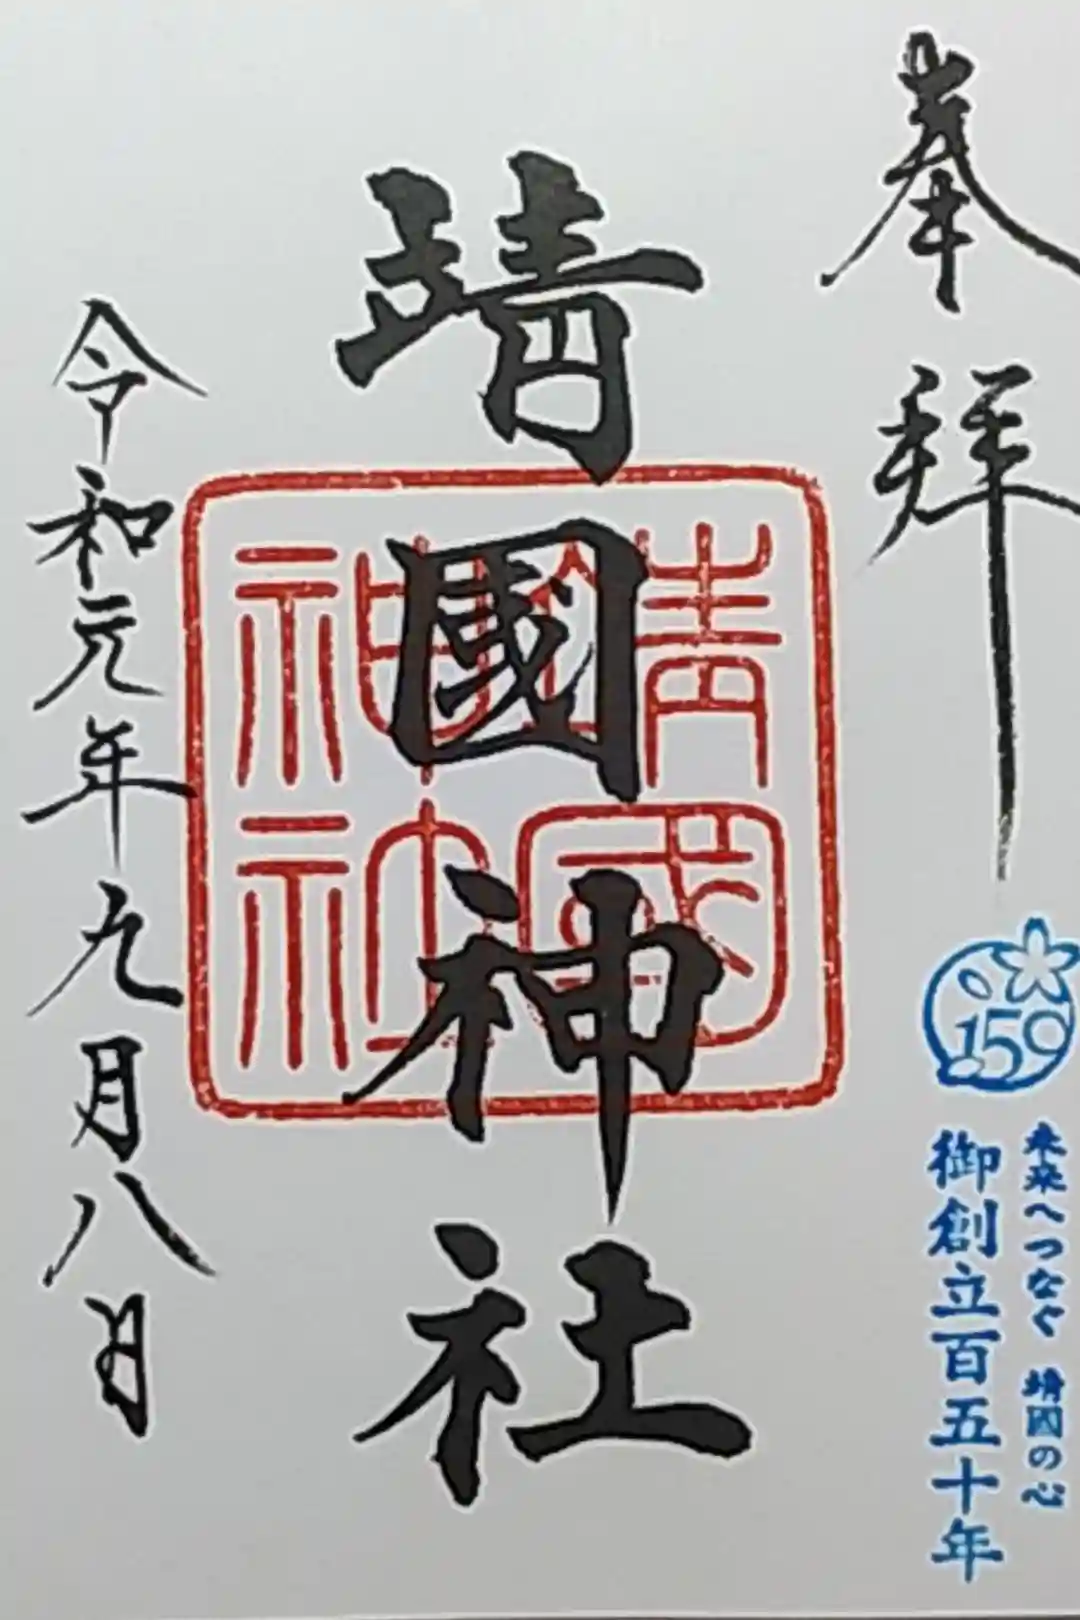 奉拝
159
未来へつなぐ 靖國の心
御創立百五十年
靖國神社
靖國
神社
令和元年九月八日